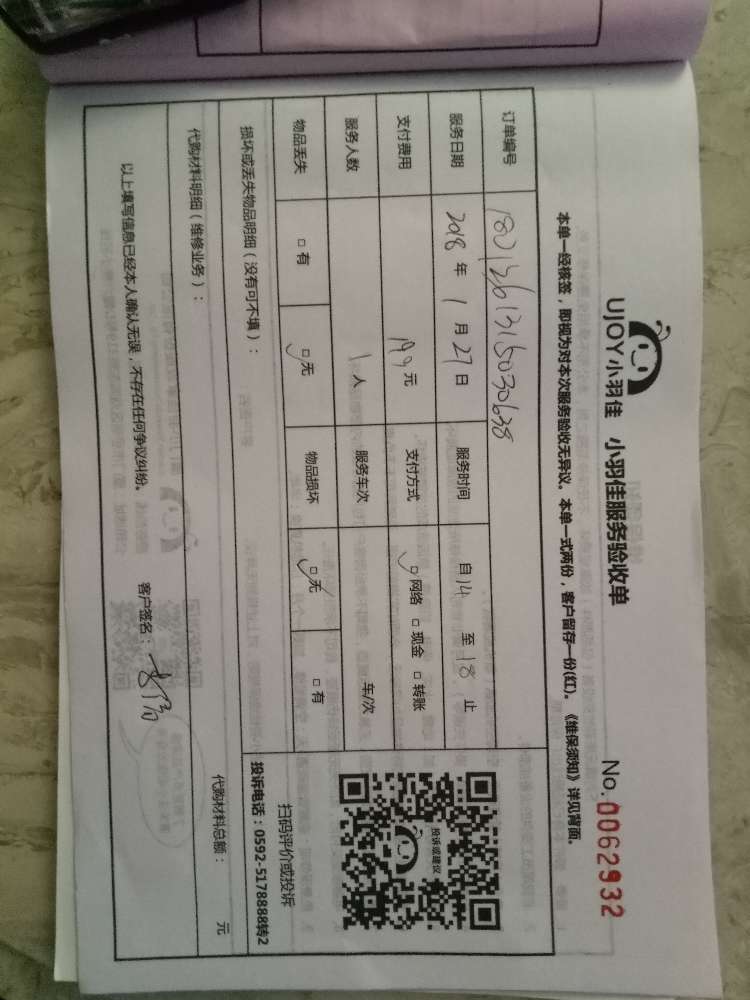 UJOY小羽佳 小羽佳服务验收单 No.0062932
本单一经核签，即视为对本次服务验收无异议。本单一式两份，客户留存一份(红)。《维保须知》详见背面。
订单编号 1801261315030638
服务日期 2018年1月27日 服务时间 自14至18止
支付费用 199元 支付方式 网络 现金 转账
服务人数 1人 服务车次 车/次
物品丢失 有 无 物品损坏 无 有
投诉或建议
扫码评价或投诉
投诉电话：0592-5178888转2
损坏或丢失物品明细（没有可不填）：
代购材料明细（维修业务）： 代购材料总额： 元
以上填写信息已经本人确认无误，不存在任何争议纠纷。 客户签名：